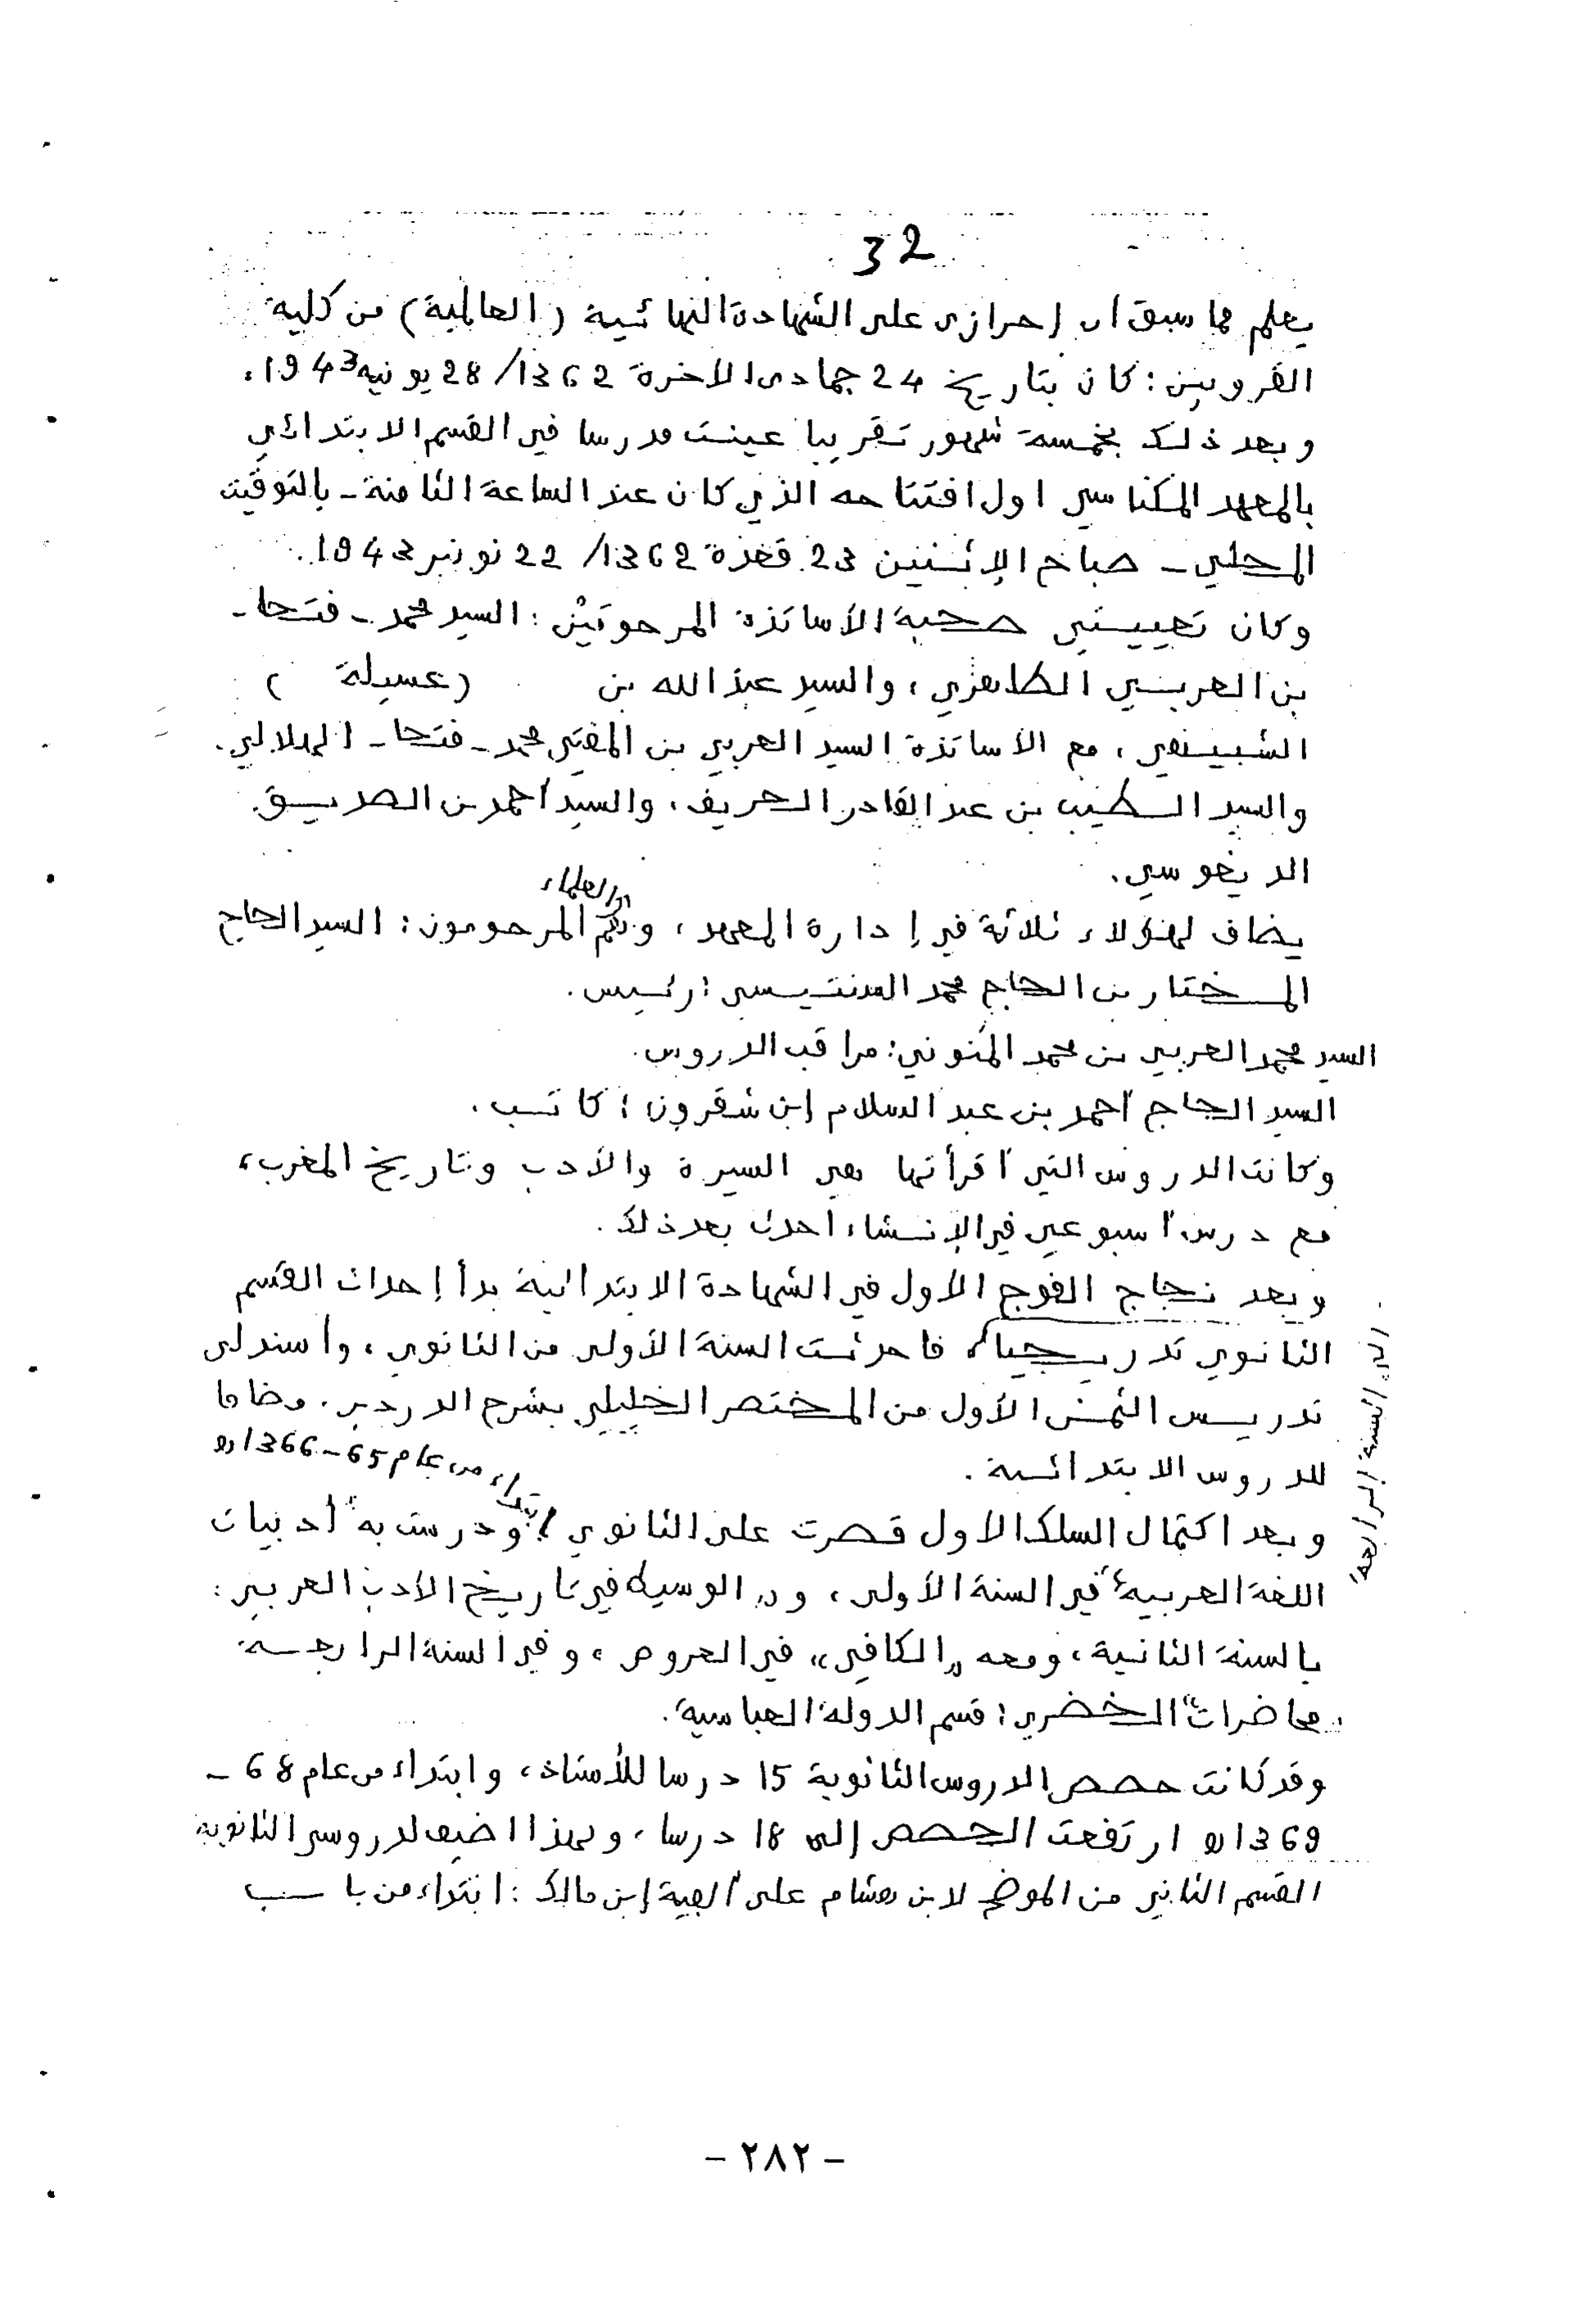 32
يعلم مما سبق أن إحرازي على الشهادة النهائية (العالمية) من كلية
القرويين: كان بتاريخ 24 جمادى الآخرة 1362/ 28 يونيه 1943.
وبعد ذلك بخمسة شهور تقريبا عينت مدرسا في القسم الابتدائي
بالمعهد المكناسي أول افتتاحه الذي كان عند الساعة الثامنة - بالتوقيت
المحلي - صباح الإثنين 23 قعدة 1362/ 22 نونبر 1943.
وكان تعييني صحبة الأساتذة المرحومين: السيد محمد - فتحا -
بن العربي الطاهري، والسيد عبد الله بن (عسيلة )
الشبيهي، مع الأساتذة السيد العربي بن المفتي محمد - فتحا - الهلالي.
والسيد الطيب بن عبد القادر الحريف، والسيد أحمد بن الصديق
الديغوسي.
يضاف لهؤلاء ثلاثة في إدارة المعهد، وهم العلماء المرحومون: السيد الحاج
المختار بن الحاج محمد السنتيسي: رئيس.
السيد محمد العربي بن محمد المنوني: مراقب الدروس.
السيد الحاج أحمد بن عبد السلام ابن شقرون: كاتب.
وكانت الدروس التي أقرأتها هي السيرة والأدب وتاريخ المغرب،
مع درس أسبوعي في الإنشاء أحدث بعد ذلك.
وبعد نجاح الفوج الأول في الشهادة الابتدائية بدأ إحداث القسم
الثانوي تدريجيا إلى السنة الرابعة، فأحدثت السنة الأولى من الثانوي، وأسند لي
تدريس الثمن الأول من المختصر الخليلي بشرح الدردير. مضافا
للدروس الابتدائية.
وبعد اكتمال السلك الأول قصرت على الثانوي ابتداء من عام 65-1366ه ودرست به "أدبيات
اللغة العربية" في السنة الأولى، و"الوسيط في تاريخ الأدب العربي:
بالسنة الثانية، ومعه "الكافي" في العروض، وفي السنة الرابعة
"محاضرات" الخضري: قسم الدولة العباسية.
وقد كانت حصص الدروس الثانوية 15 درسا للأستاذ، وابتداء من عام 68 -
1369ه ارتفعت الحصص إلى 18 درسا، وبهذا أضيف لدروسي الثانوية
القسم الثاني من الموضح لابن هشام على ألفية ابن مالك: ابتداء من باب
- ٢٨٢ -